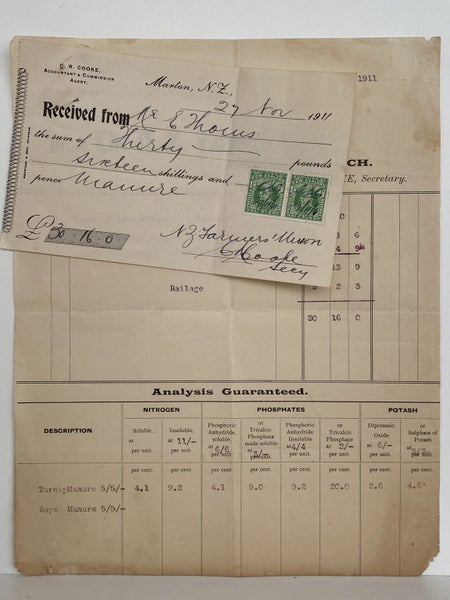 C. R. COOKE,
ACCOUNTANT & COMMISSION
AGENT.
Marton, N.Z., 27 Nov 1911
Received from Mr E Thoms
the sum of Thirty pounds
sixteen shillings and
pence Manure
£30-16-0
NZ Farmers' Union
CRCooke
Secy
1911
CH.
KE, Secretary.
0
3 6
4 9
13 9
Railage 2 3
30 16 0
Analysis Guaranteed.
DESCRIPTION.
NITROGEN
PHOSPHATES
POTASH
Soluble, at per unit.
Insoluble, at 11/- per unit.
Phosphoric Anhydride soluble, at 6/6 per unit.
or Tricalcic Phosphate made soluble at 3/- per unit.
Phosphoric Anhydride Insoluble at 4/4 per unit.
or Tricalcic Phosphate at 2/- per unit.
Dipotassic Oxide at 6/- per unit.
or Sulphate of Potash at per unit.
per cent. per cent. per cent. per cent. per cent. per cent. per cent. per cent.
Turnip Manure 5/5/- 4.1 9.2 4.1 9.0 9.2 20.0 2.6 4.8
Rape Manure 5/5/-